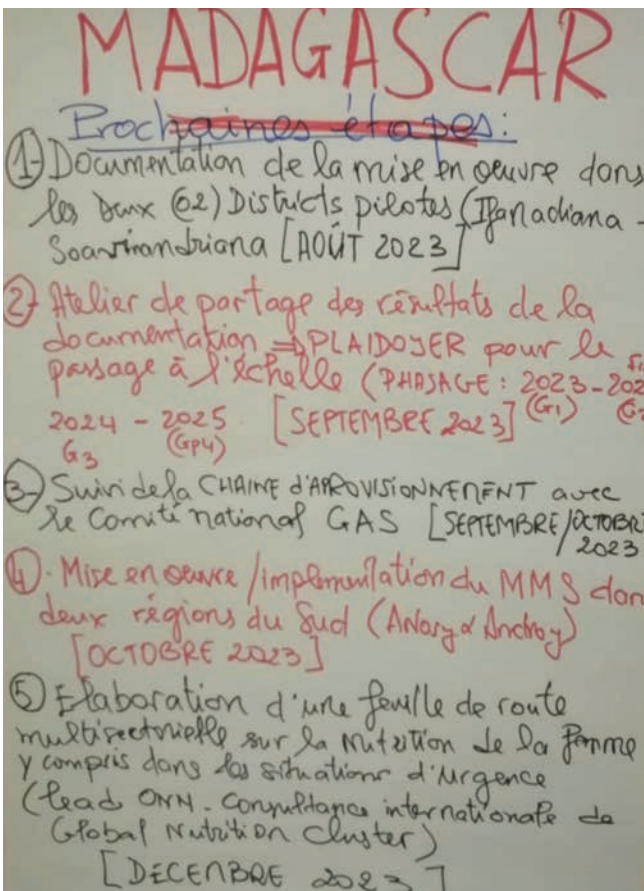 MADAGASCAR
Prochaines étapes:
1- Documentation de la mise en oeuvre dans
les Deux (02) Districts pilotes (Ifanadiana -
Soavinandriana [AOÛT 2023]
2- Atelier de partage des résultats de la
documentation ⇒ PLAIDOYER pour le
passage à l'échelle (PHASAGE : 2023 - 202
2024 - 2025 [SEPTEMBRE 2023] (G1)
G3 (Gp4)
3- Suivi de la CHAINE d'APROVISIONNEMENT avec
le Comité national GAS [SEPTEMBRE/OCTOBRE
2023
4. Mise en oeuvre / implementation du MMS dan
deux régions du Sud (ANosy & Androy)
[OCTOBRE 2023]
5 Elaboration d'une feuille de route
multisectorielle sur la Nutrition de la femme
y compris dans les situations d'urgence
(lead ONN - Consultance internationale de
Global Nutrition Cluster)
[DÉCEMBRE 2023]